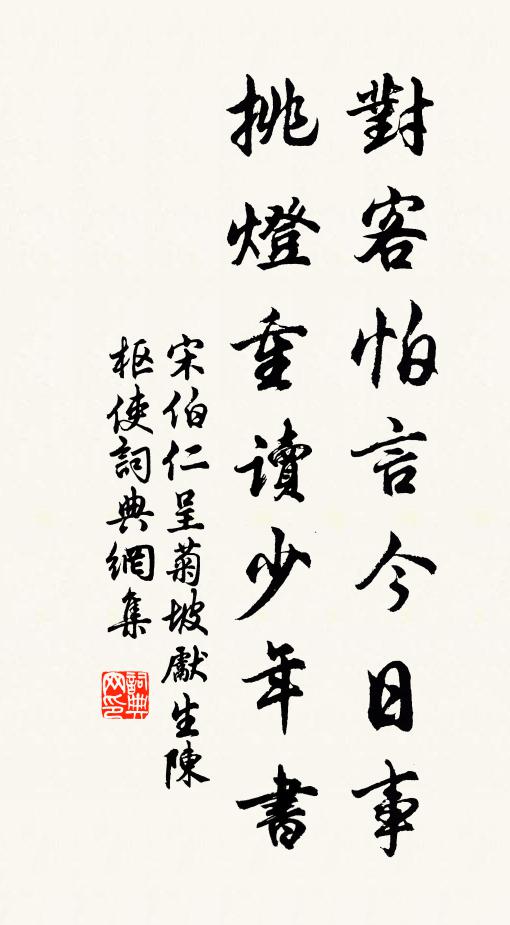 對客怕言今日事
挑燈重讀少年書
宋伯仁呈菊坡獻生陳
枢使詞典網集
詞典网印